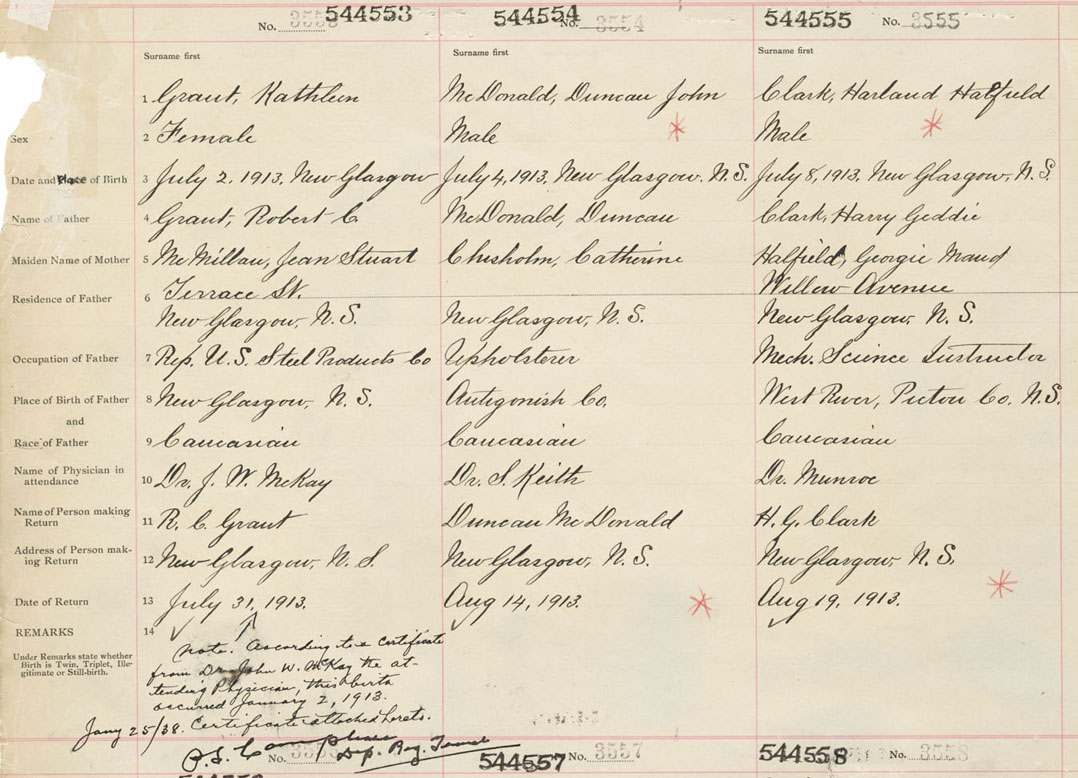 No. 3553 544553
544554 No. 3554
544555 No. 3555
Surname first
Surname first
Surname first
1 Grant, Kathleen
McDonald, Duncan John
Clark, Harland Hatfield
Sex
2 Female
Male
Male
Date and Place of Birth
3 July 2, 1913, New Glasgow
July 4, 1913, New Glasgow. N.S.
July 8, 1913, New Glasgow, N.S.
Name of Father
4 Grant, Robert C.
McDonald, Duncan
Clark, Harry Geddie
Maiden Name of Mother
5 McMillan, Jean Stuart
Chisholm, Catherine
Halfield, Georgie Maud
Residence of Father
6 Terrace St.
New Glasgow, N.S.
New Glasgow, N.S.
Willow Avenue
New Glasgow, N.S.
Occupation of Father
7 Rep. U.S. Steel Products Co
Upholsterer
Mech. Science Instructor
Place of Birth of Father
8 New Glasgow, N.S.
Antigonish Co.
West River, Pictou Co. N.S.
and
Race of Father
9 Caucasian
Caucasian
Caucasian
Name of Physician in
attendance
10 Dr. J. W. McKay
Dr. S. Keith
Dr. Munroe
Name of Person making
Return
11 R. C. Grant
Duncan McDonald
H. G. Clark
Address of Person mak-
ing Return
12 New Glasgow, N.S.
New Glasgow, N.S.
New Glasgow, N.S.
Date of Return
13 July 31, 1913.
Aug 14, 1913.
Aug 19, 1913.
REMARKS
14
Under Remarks state whether
Birth is Twin, Triplet, Ille-
gitimate or Still-birth.
Note. According to a certificate
from Dr. John W. McKay the at-
tending Physician, this birth
occurred January 2, 1913.
Jany 25/38. Certificate attached hereto.
Dep. Reg.
No.
544557 No. 3557
544558 No. 3558